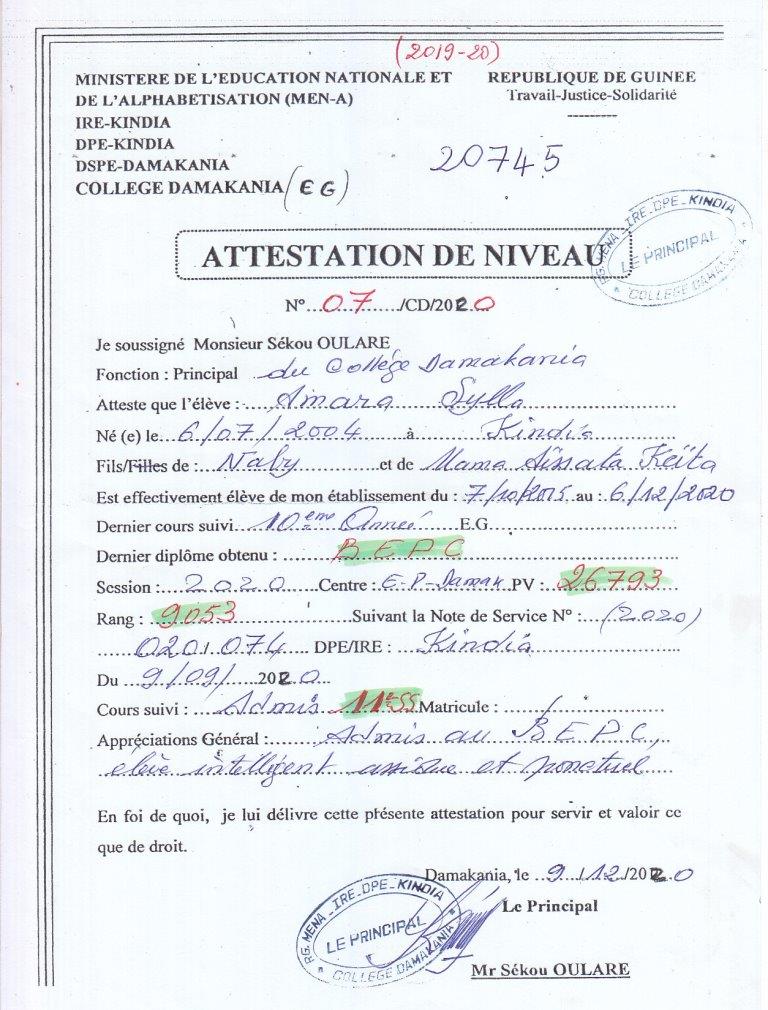 (2019-20)
MINISTERE DE L'EDUCATION NATIONALE ET
DE L'ALPHABETISATION (MEN-A)
IRE-KINDIA
DPE-KINDIA
DSPE-DAMAKANIA
COLLEGE DAMAKANIA (EG)
REPUBLIQUE DE GUINEE
Travail-Justice-Solidarité
20745
ATTESTATION DE NIVEAU
RG.MENA_IRE_DPE_KINDIA
LE PRINCIPAL
COLLEGE DAMAKANIA
N°...07.../CD/2020
Je soussigné Monsieur Sékou OULARE
Fonction : Principal du Collège Damakania
Atteste que l'élève : Amara Sylla
Né (e) le 6/07/2004 à Kindia
Fils/Filles de : Naby et de Mama Aïssata Keïta
Est effectivement élève de mon établissement du : 7/10/2015 au : 6/12/2020
Dernier cours suivi 10ème Année E.G
Dernier diplôme obtenu : BEPC
Session : 2020 Centre : E-P-Damak PV : 26793
Rang : 9053 Suivant la Note de Service N° : (2020)
0201074 DPE/IRE : Kindia
Du 9/09/ 2020
Cours suivi : Admis 11è55 Matricule : /
Appréciations Général : Admis au BEPC,
élève intelligent assidue et ponctuel
En foi de quoi, je lui délivre cette présente attestation pour servir et valoir ce
que de droit.
Damakania, le 9/12/2020
Le Principal
RG.MENA_IRE_DPE_KINDIA
LE PRINCIPAL
COLLEGE DAMAKANIA
Mr Sékou OULARE